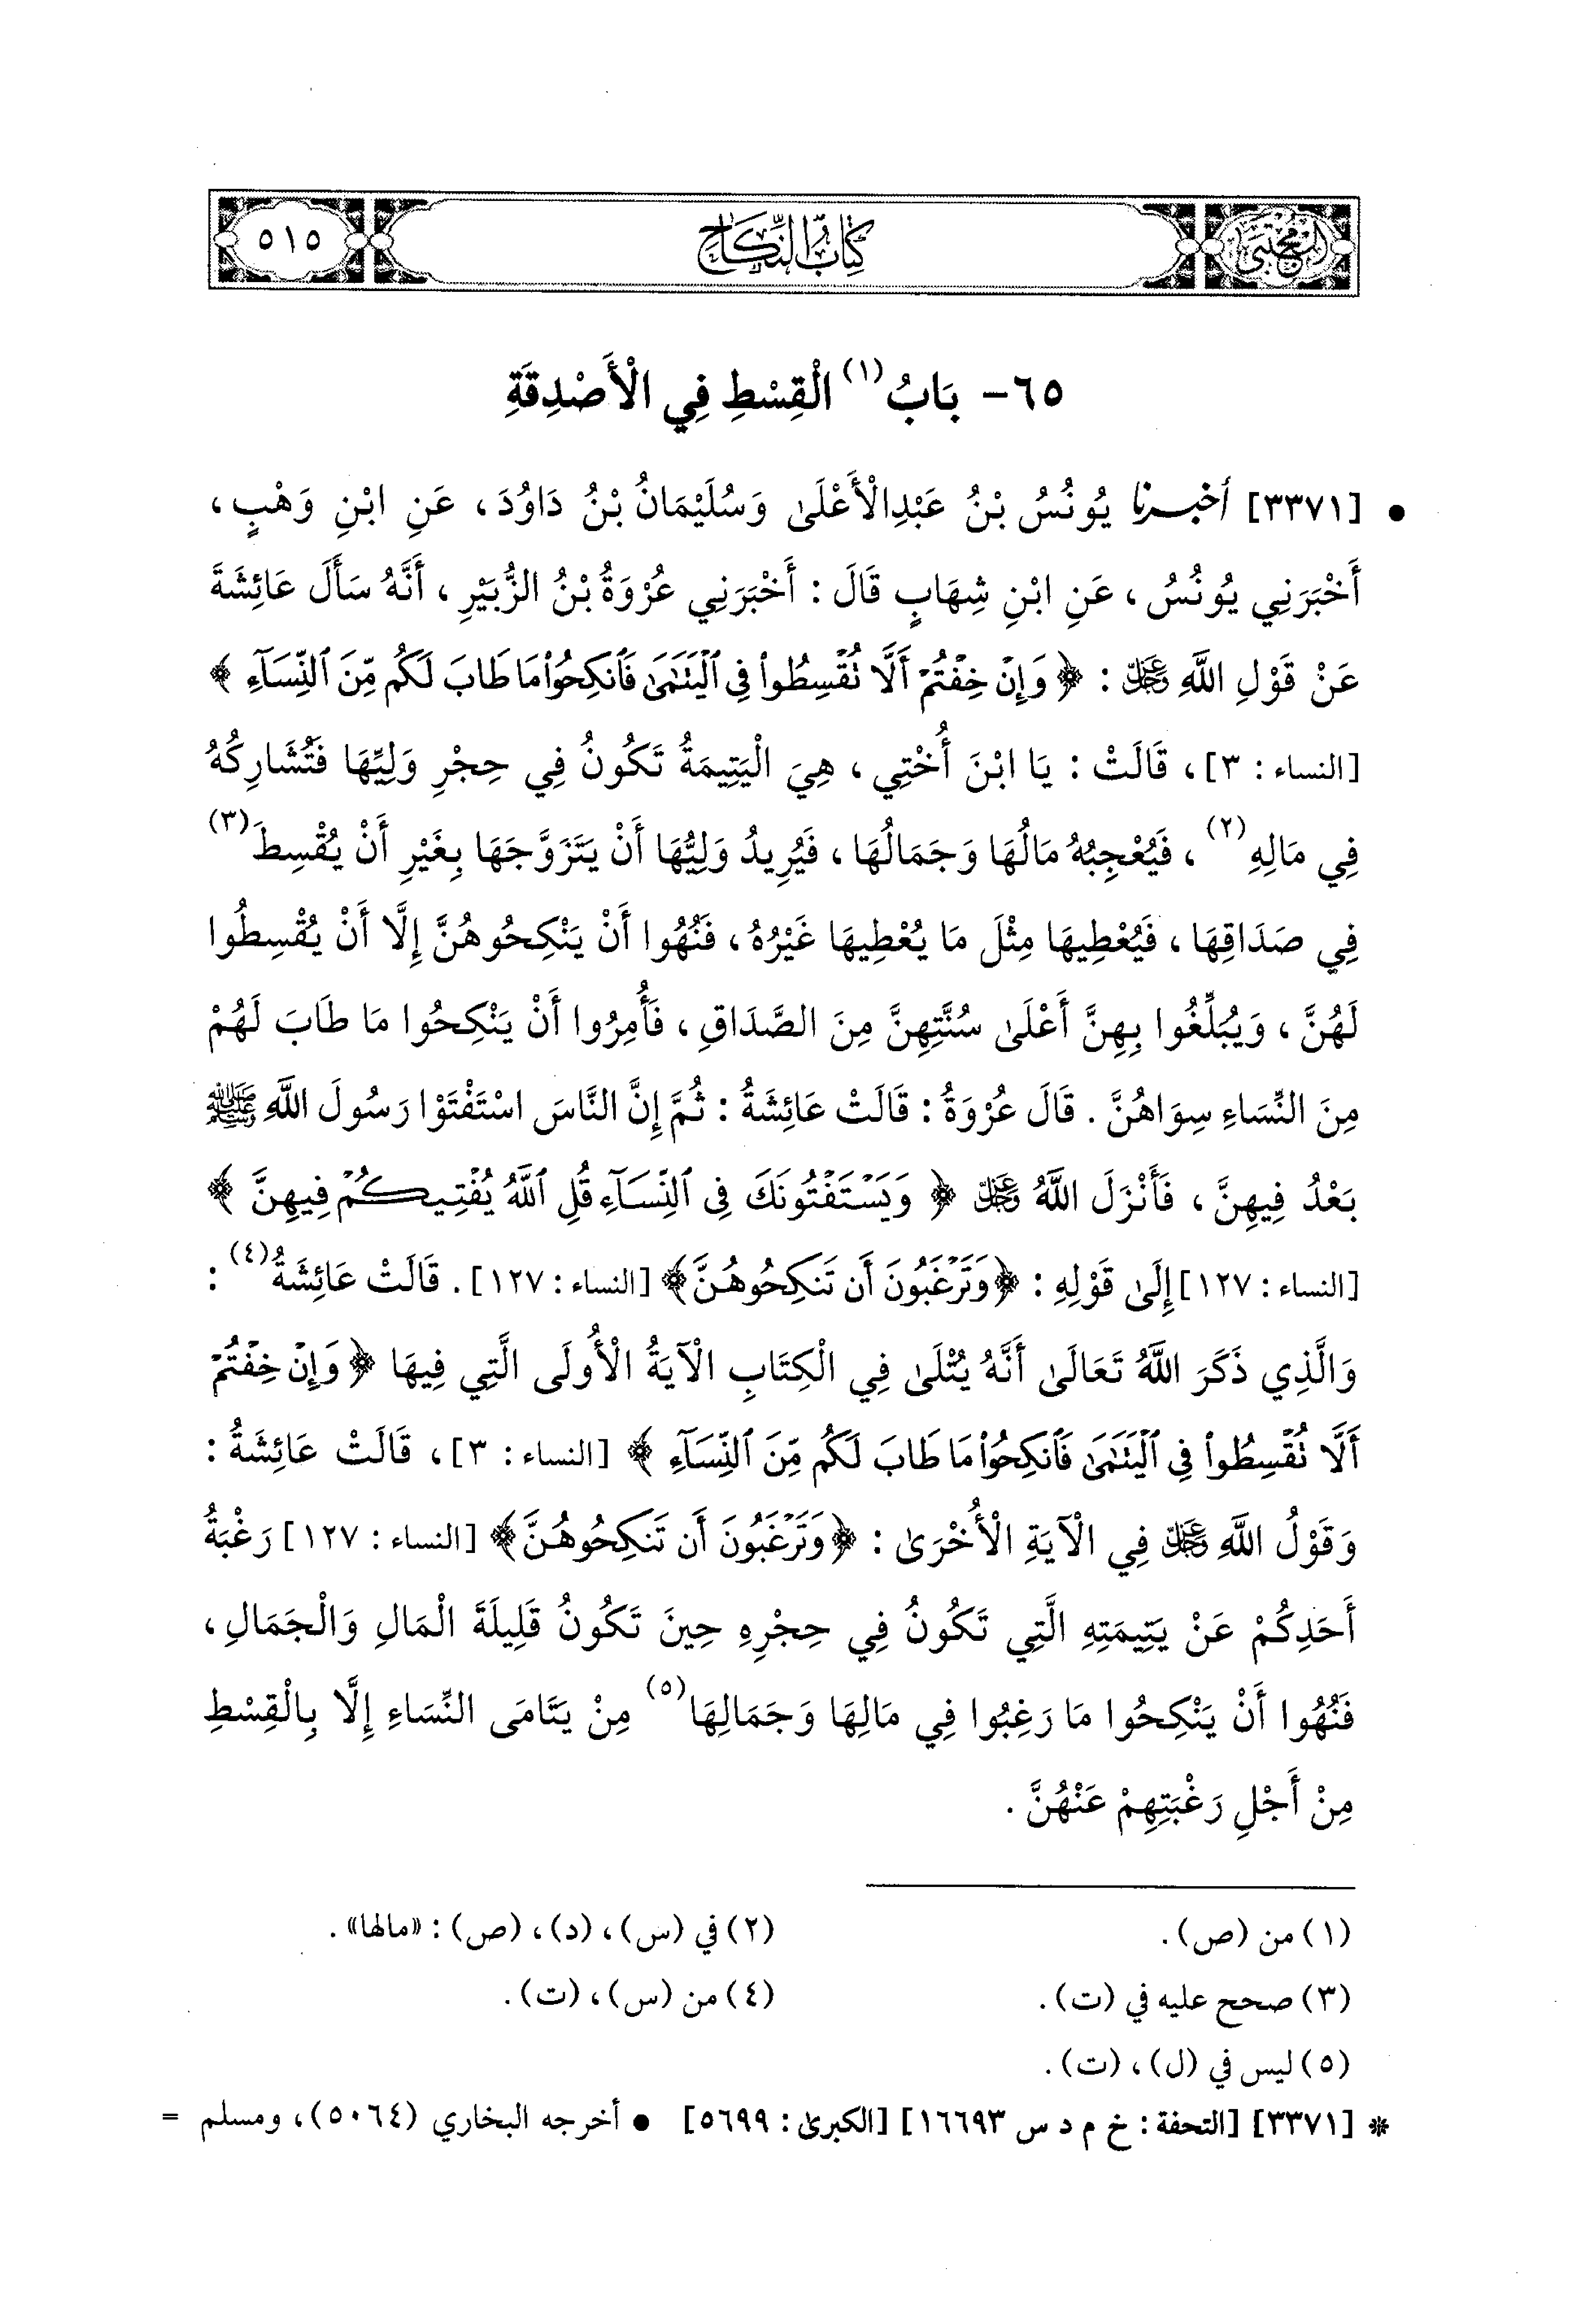 المجتبى
كتاب النكاح
٥١٥
٦٥- بَابُ (١) الْقِسْطِ فِي الْأَصْدِقَةِ
• [٣٣٧١] أخبرنا يُونُسُ بْنُ عَبْدِالْأَعْلَىٰ وَسُلَيْمَانُ بْنُ دَاوُدَ، عَنِ ابْنِ وَهْبٍ،
أَخْبَرَنِي يُونُسُ، عَنِ ابْنِ شِهَابٍ قَالَ: أَخْبَرَنِي عُرْوَةُ بْنُ الزُّبَيْرِ، أَنَّهُ سَأَلَ عَائِشَةَ
عَنْ قَوْلِ اللَّهِ عَزَّ وَجَلَّ: ﴿وَإِنْ خِفْتُمْ أَلَّا تُقْسِطُوا۟ فِى ٱلْيَتَـٰمَىٰ فَٱنكِحُوا۟ مَا طَابَ لَكُم مِّنَ ٱلنِّسَآءِ﴾
[النساء: ٣]، قَالَتْ: يَا ابْنَ أُخْتِي، هِيَ الْيَتِيمَةُ تَكُونُ فِي حِجْرِ وَلِيِّهَا فَتُشَارِكُهُ
فِي مَالِهِ (٢)، فَيُعْجِبُهُ مَالُهَا وَجَمَالُهَا، فَيُرِيدُ وَلِيُّهَا أَنْ يَتَزَوَّجَهَا بِغَيْرِ أَنْ يُقْسِطَ (٣)
فِي صَدَاقِهَا، فَيُعْطِيهَا مِثْلَ مَا يُعْطِيهَا غَيْرُهُ، فَنُهُوا أَنْ يَنْكِحُوهُنَّ إِلَّا أَنْ يُقْسِطُوا
لَهُنَّ، وَيُبَلِّغُوا بِهِنَّ أَعْلَىٰ سُنَّتِهِنَّ مِنَ الصَّدَاقِ، فَأُمِرُوا أَنْ يَنْكِحُوا مَا طَابَ لَهُمْ
مِنَ النِّسَاءِ سِوَاهُنَّ. قَالَ عُرْوَةُ: قَالَتْ عَائِشَةُ: ثُمَّ إِنَّ النَّاسَ اسْتَفْتَوْا رَسُولَ اللَّهِ ﷺ
بَعْدُ فِيهِنَّ، فَأَنْزَلَ اللَّهُ عَزَّ وَجَلَّ ﴿وَيَسْتَفْتُونَكَ فِى ٱلنِّسَآءِ قُلِ ٱللَّهُ يُفْتِيكُمْ فِيهِنَّ﴾
[النساء: ١٢٧] إِلَىٰ قَوْلِهِ: ﴿وَتَرْغَبُونَ أَن تَنكِحُوهُنَّ﴾ [النساء: ١٢٧]. قَالَتْ عَائِشَةُ (٤):
وَالَّذِي ذَكَرَ اللَّهُ تَعَالَىٰ أَنَّهُ يُتْلَىٰ فِي الْكِتَابِ الْآيَةُ الْأُولَى الَّتِي فِيهَا ﴿وَإِنْ خِفْتُمْ
أَلَّا تُقْسِطُوا۟ فِى ٱلْيَتَـٰمَىٰ فَٱنكِحُوا۟ مَا طَابَ لَكُم مِّنَ ٱلنِّسَآءِ﴾ [النساء: ٣]، قَالَتْ عَائِشَةُ:
وَقَوْلُ اللَّهِ عَزَّ وَجَلَّ فِي الْآيَةِ الْأُخْرَىٰ: ﴿وَتَرْغَبُونَ أَن تَنكِحُوهُنَّ﴾ [النساء: ١٢٧] رَغْبَةُ
أَحَدِكُمْ عَنْ يَتِيمَتِهِ الَّتِي تَكُونُ فِي حِجْرِهِ حِينَ تَكُونُ قَلِيلَةَ الْمَالِ وَالْجَمَالِ،
فَنُهُوا أَنْ يَنْكِحُوا مَا رَغِبُوا فِي مَالِهَا وَجَمَالِهَا (٥) مِنْ يَتَامَى النِّسَاءِ إِلَّا بِالْقِسْطِ
مِنْ أَجْلِ رَغْبَتِهِمْ عَنْهُنَّ.
(١) من (ص).
(٢) في (س)، (د)، (ص): «مالها».
(٣) صحح عليه في (ت).
(٤) من (س)، (ت).
(٥) ليس في (ل)، (ت).
* [٣٣٧١] [التحفة: خ م د س ١٦٦٩٣] [الكبرى: ٥٦٩٩] • أخرجه البخاري (٥٠٦٤)، ومسلم =